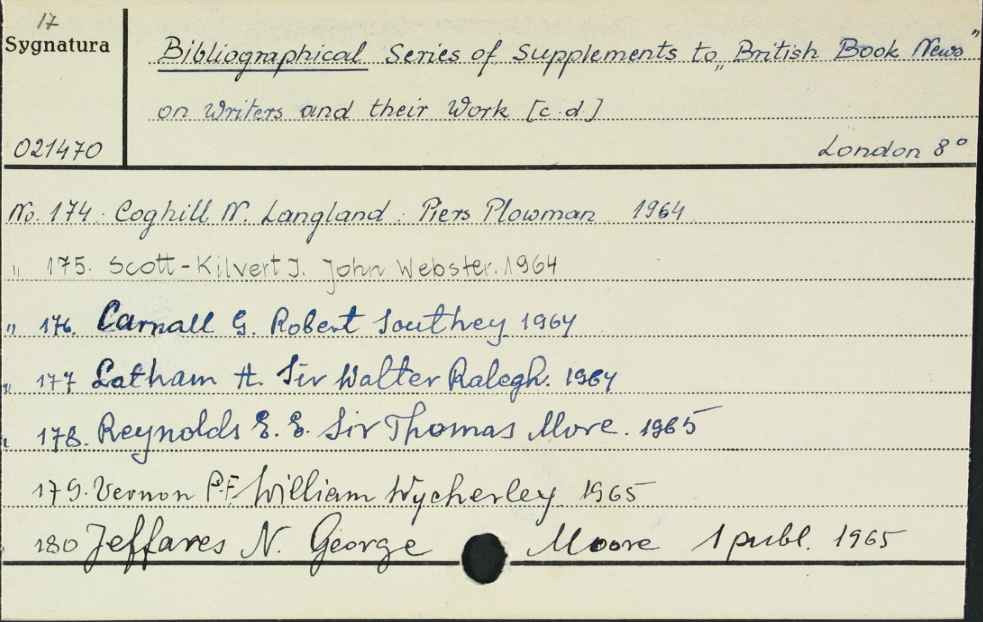 17
Sygnatura
Bibliographical Series of Supplements to „British Book News"
on Writers and their Work [c.d]
021470
London 8°
No. 174. Coghill N. Langland. Piers Plowman 1964
" 175. Scott-Kilvert J. John Webster. 1964
" 176. Carnall G. Robert Southey 1964
" 177 Latham A. Sir Walter Ralegh. 1964
" 178. Reynolds E. E. Sir Thomas More. 1965
179. Vernon P.F. William Wycherley 1965
180 Jeffares N. George Moore 1 publ. 1965